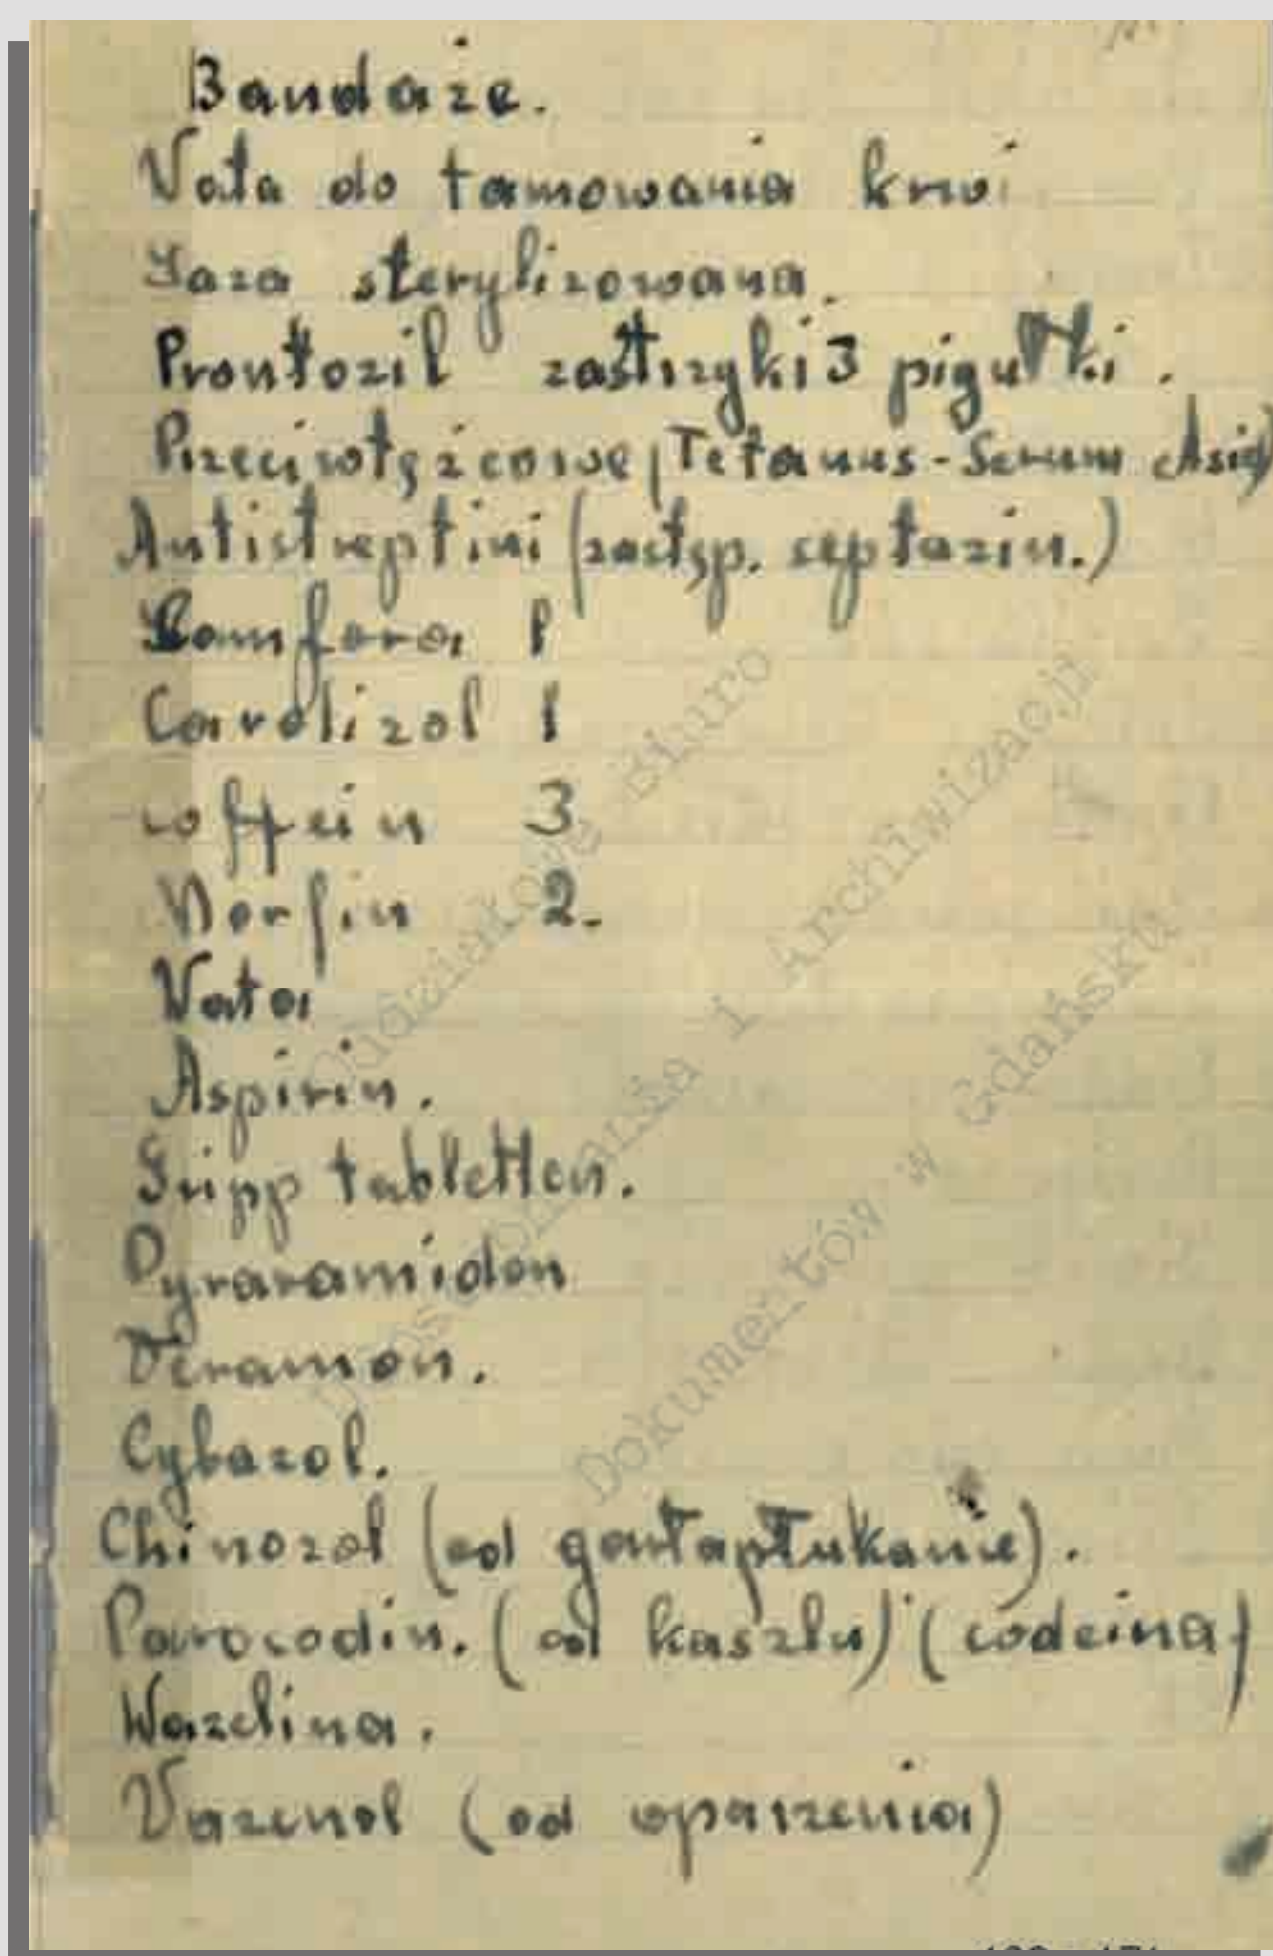 Bandaże.
Vata do tamowania krwi
Gaza sterylizowana.
Prontozil zastrzyki 3 pigułki.
Przeciwtężcowe (Tetanus-Serum Asid)
Antistreptini (zastęp. septazin.)
Kamfora 1
Cardizol 1
coffein 3
Morfin 2.
Vata
Aspirin.
Gripp tabletten.
Pyraramidon
Veramon.
Cybazol.
Chinozol (od gardłapłukanie).
Paracodin. (od kaszlu) (codeina)
Wazelina.
Vazenol (od oparzenia)
Oddziałowe Biuro
Udostępniania i Archiwizacji
Dokumentów w Gdańsku